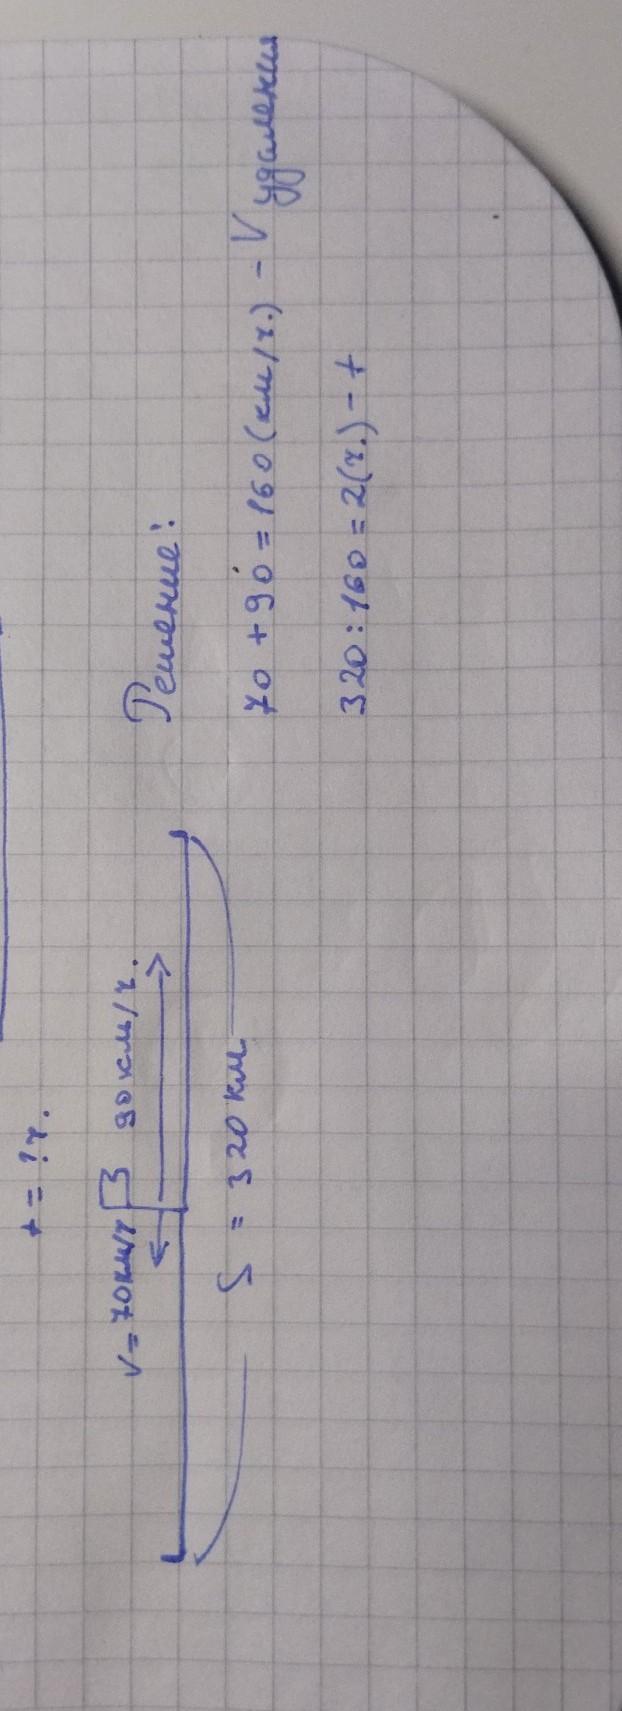 t = ? ч.
V = 70 км/ч 90 км/ч.
S = 320 км
Решение:
70 + 90 = 160 (км/ч.) - V удаления
320 : 160 = 2 (ч.) - t